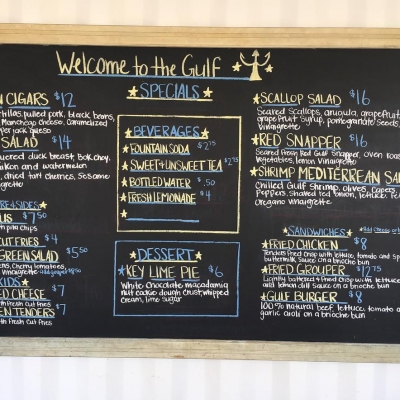 Welcome to the Gulf
SPECIALS
CIGARS $12
pulled pork, black beans,
Manchego cheese, Caramelized
jack queso
SALAD $14
duck breast, Bok choy,
and watermelon
dried tart cherries, Sesame
SIDES
US $7.50
with pita chips
CUT FRIES $4
GREEN SALAD $5.50
tomatoes,
Vinaigrette
KIDS
ED CHEESE $7
with Fresh Cut fries
EN TENDERS $7
with Fresh Cut Fries
BEVERAGES
FOUNTAIN SODA $2.75
SWEET + UNSWEET TEA $2.75
BOTTLED WATER $.50
FRESH LEMONADE $4
DESSERT
KEY LIME PIE $6
White Chocolate macadamia
nut cookie dough crust, whipped
cream, lime sugar
SCALLOP SALAD $16
Seared Scallops, arugula, grapefruit,
grapefruit Syrup, pomegranate Seeds,
Vinaigrette
RED SNAPPER $16
Seared Fresh Red Gulf Snapper, oven roas
vegetables, lemon Vinaigrette
SHRIMP MEDITERREAN SA
Chilled Gulf Shrimp, olives, capers,
Peppers, Shaved red onion, lettuce,
oregano Vinaigrette
SANDWICHES
FRIED CHICKEN $8
Tenders fried Crisp with lettuce, tomato and
buttermilk Sauce on a brioche bun
FRIED GROUPER $12.75
Lightly battered fried crisp with lettuce
and lemon dill Sauce on a brioche bun
GULF BURGER $8
100% natural beef, lettuce, tomato a
garlic aioli on a brioche bun